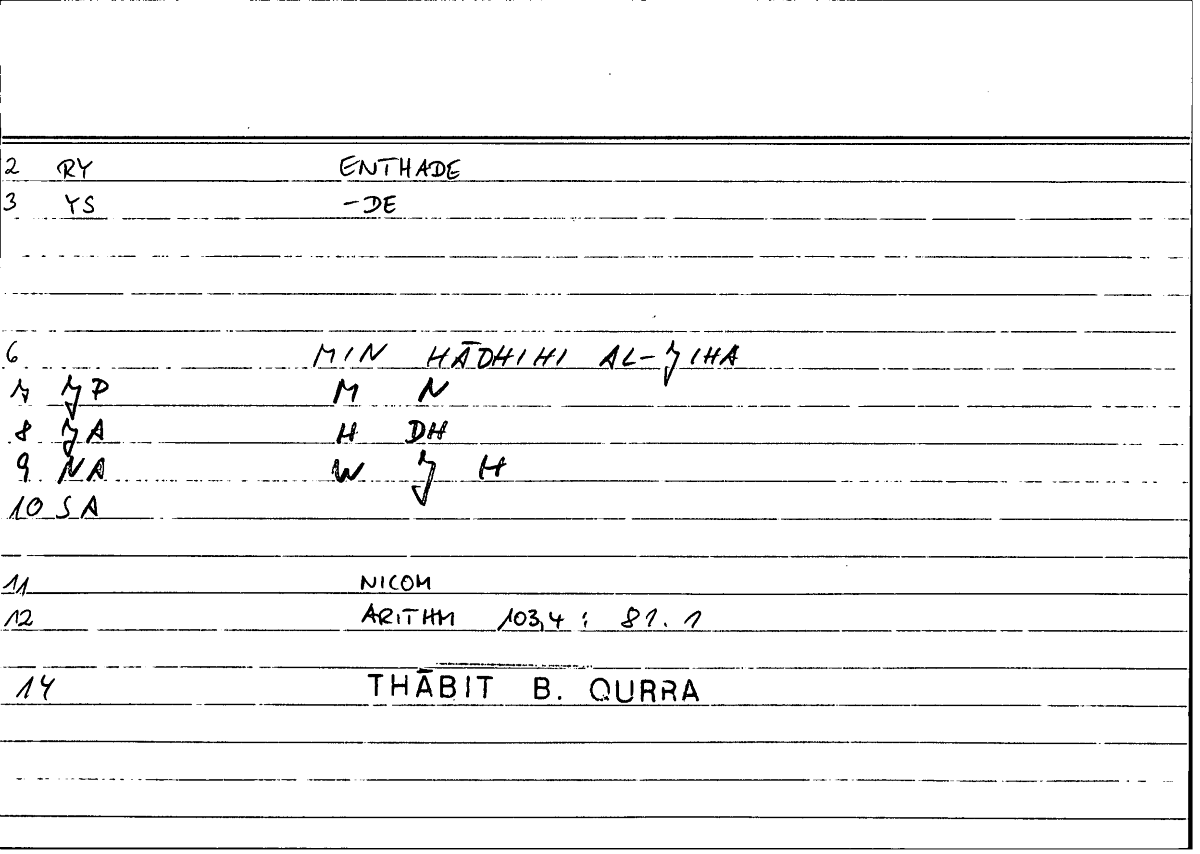 2 RY ENTHADE
3 YS -DE
6 MIN HĀDHIHI AL-JIHA
7 JP M N
8 JA H DH
9 NA W J H
10 SA
11 NICOM
12 ARITHM 103,4 : 81.1
14 THĀBIT B. QURRA